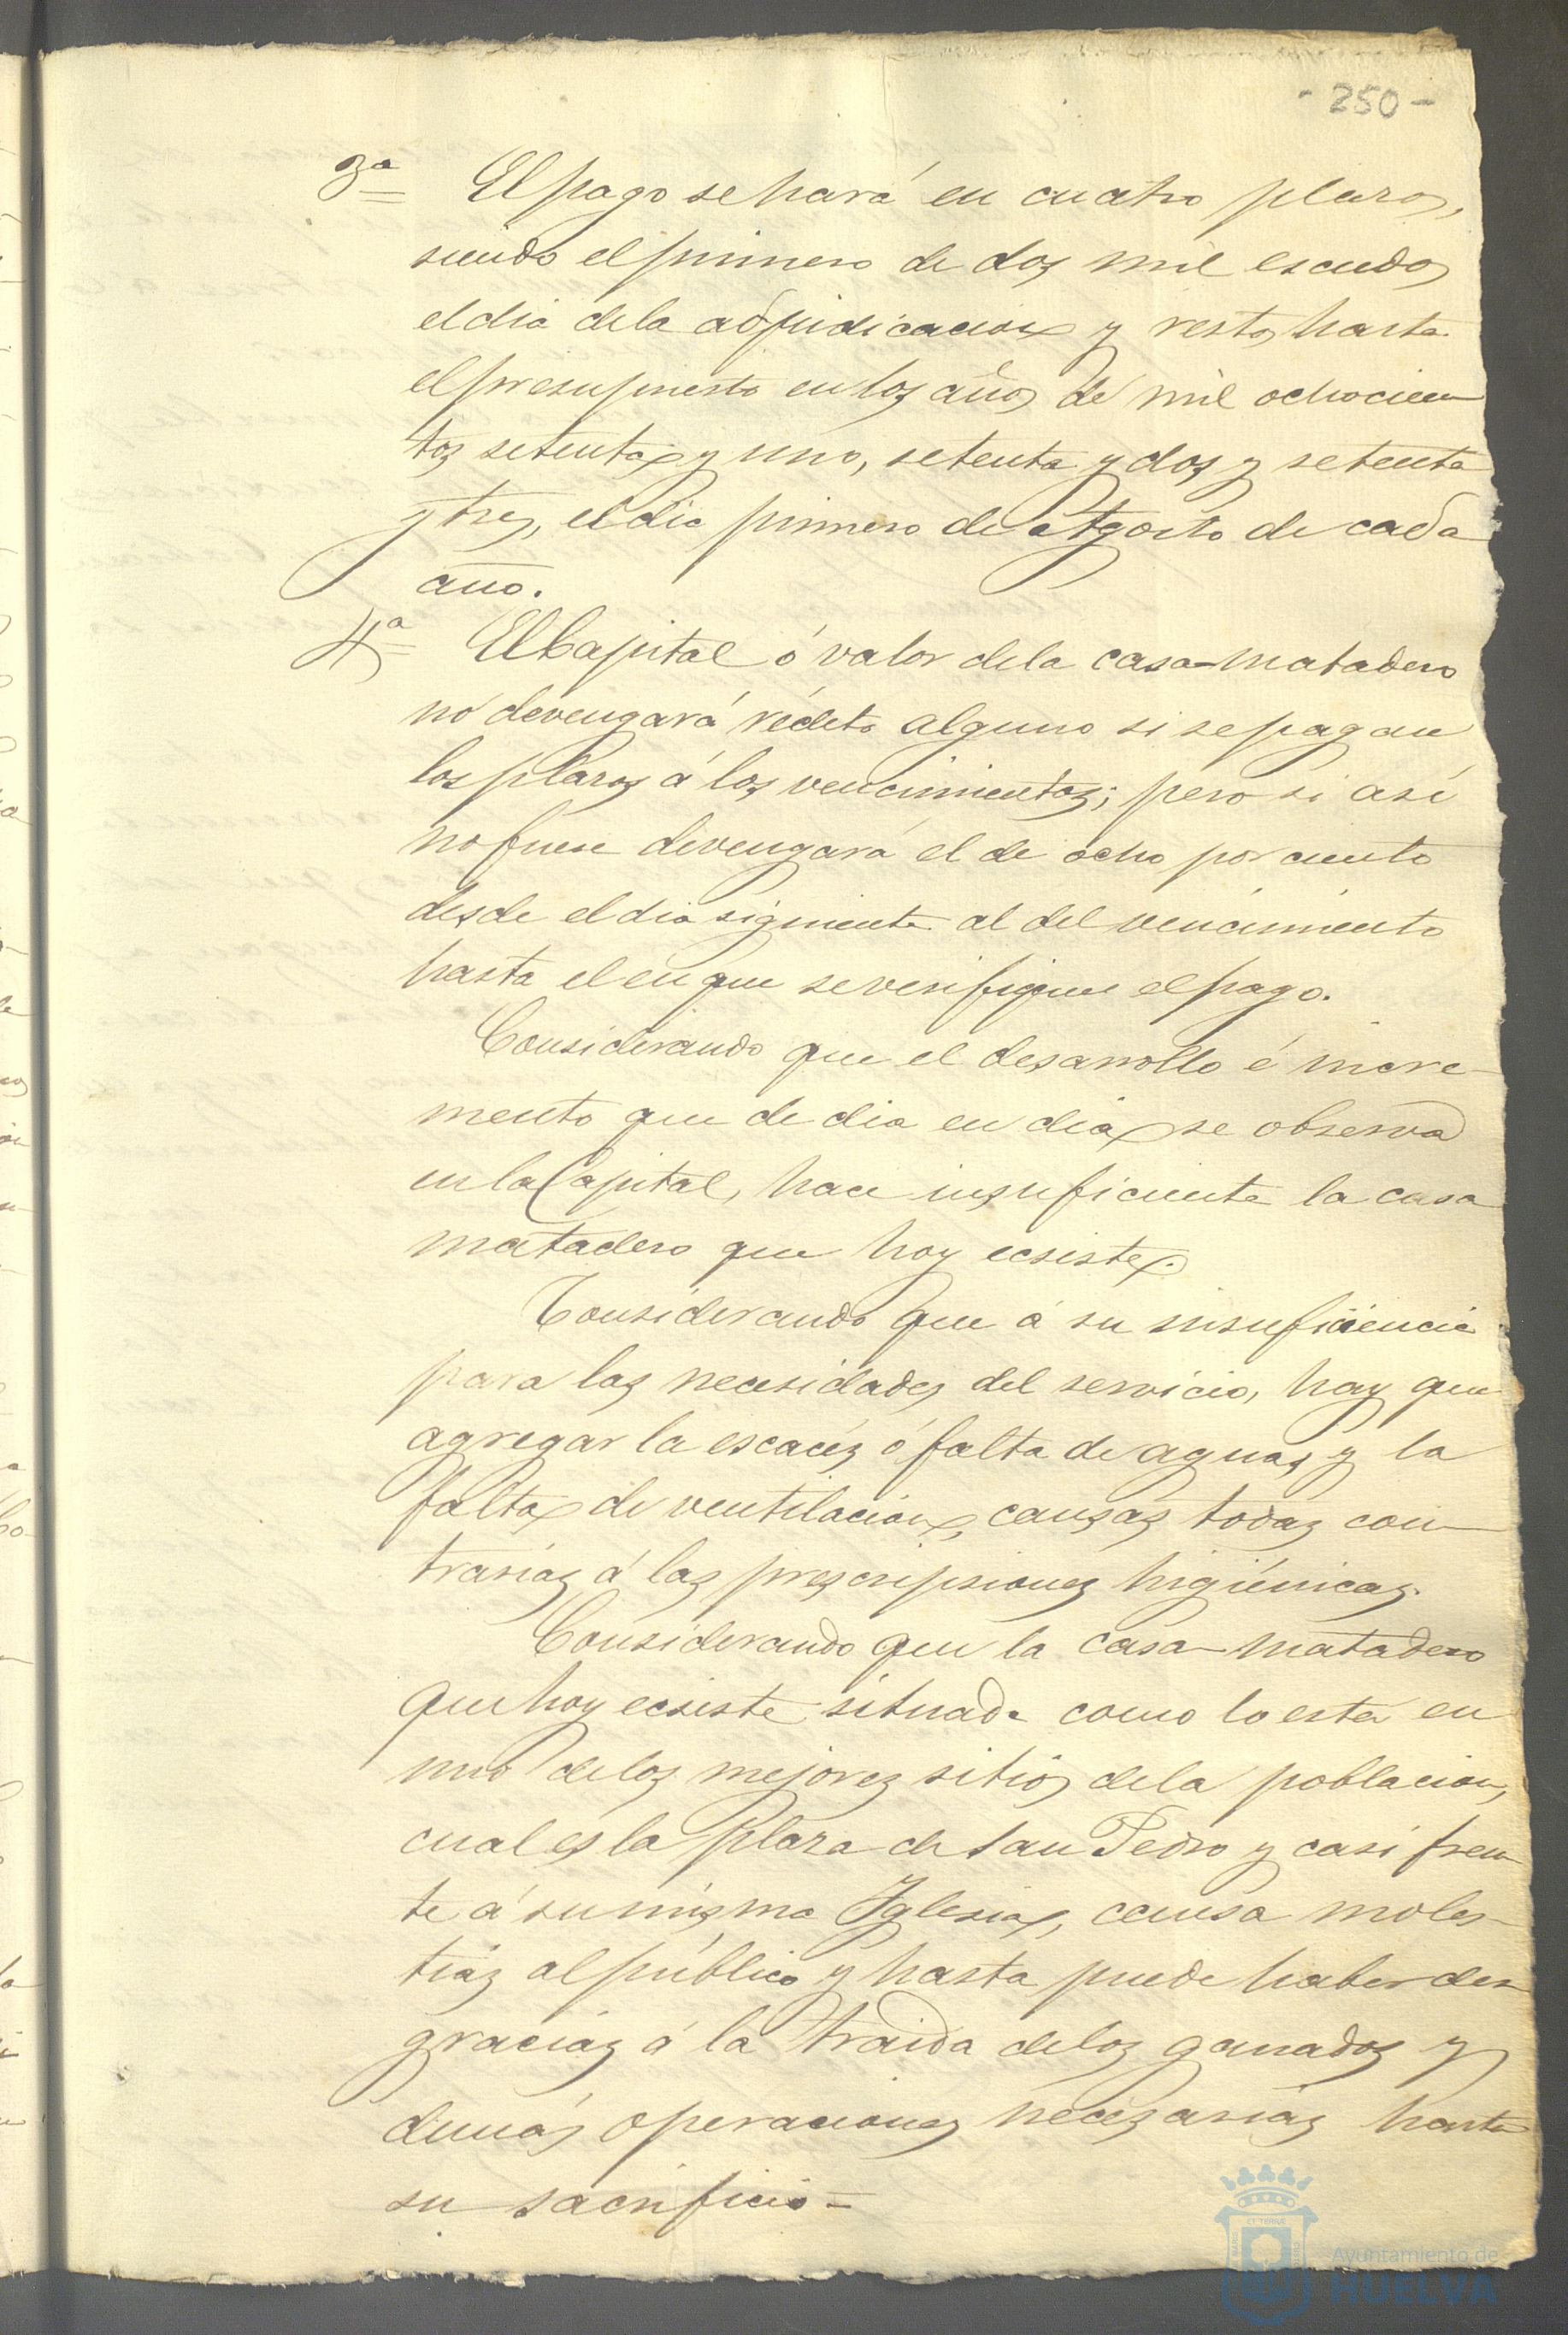 - 250 -
3ª El pago se hará en cuatro plazos,
siendo el primero de dos mil escudos
el dia de la adjudicacion y restos hasta
el presupuesto en los años de mil ochocien
tos setenta y uno, setenta y dos y setenta
y tres, el dia primero de Agosto de cada
año.
4ª El Capital ó valor de la casa-matadero
no devengará rédito alguno si se pagan
los plazos á los vencimientos; pero si así
no fuese devengará el de ocho por ciento
desde el dia siguiente al del vencimiento
hasta el en que se verifique el pago.
Considerando que el desarrollo é incre-
mento que de dia en dia se observa
en la Capital, hace insuficiente la casa
matadero que hoy ecsiste.
Considerando que á su insuficiencia
para las necesidades del servicio, hay que
agregar la escacéz ó falta de aguas y la
falta de ventilacion, causas todas con-
trarias á las prescripsiones higiénicas.
Considerando que la casa-matadero
que hoy ecsiste situada como lo esta en
uno de los mejores sitios de la poblacion,
cual es la plaza de San Pedro y casi fren
te á su misma Iglesia, causa moles-
tias al público y hasta puede haber des
gracias á la traida de los ganados y
demás operaciones necesarias hasta
su sacrificio=
Ayuntamiento de
HUELVA